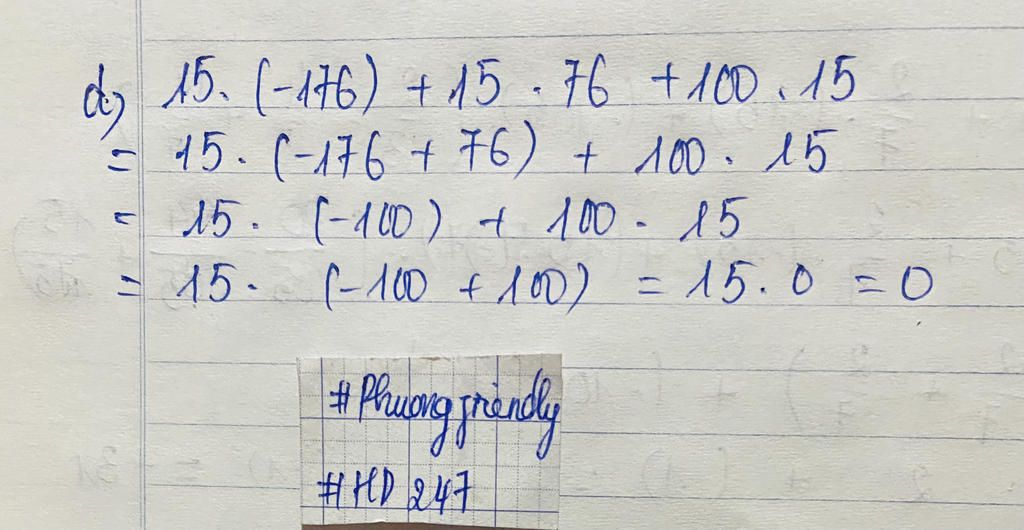 d) 15. (-176) + 15 . 76 + 100 . 15
= 15. (-176 + 76) + 100 . 15
= 15. (-100) + 100 . 15
= 15. (-100 + 100) = 15. 0 = 0
#Phuong friendly
#HD 247